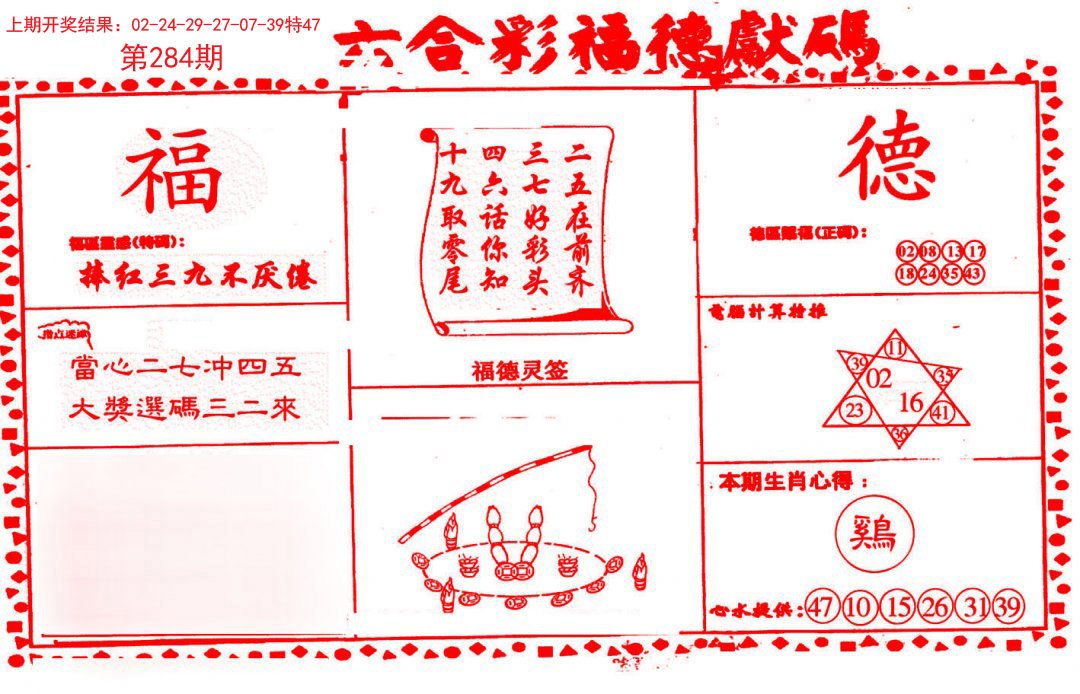 上期开奖结果：02-24-29-27-07-39特47
第284期
六合彩福德獻碼
福
福區靈感(特碼)：
捧红三九不厌倦
當心二七冲四五
大獎選碼三二來
二五在前齐
三七好彩头
四六话你知
十九取零尾
福德灵签
德
德區賜福(正碼)：
02 08 13 17
18 24 35 43
電腦計算特推
11
39 35
02
16
23 41
36
本期生肖心得：
鷄
心水提供：47 10 15 26 31 39